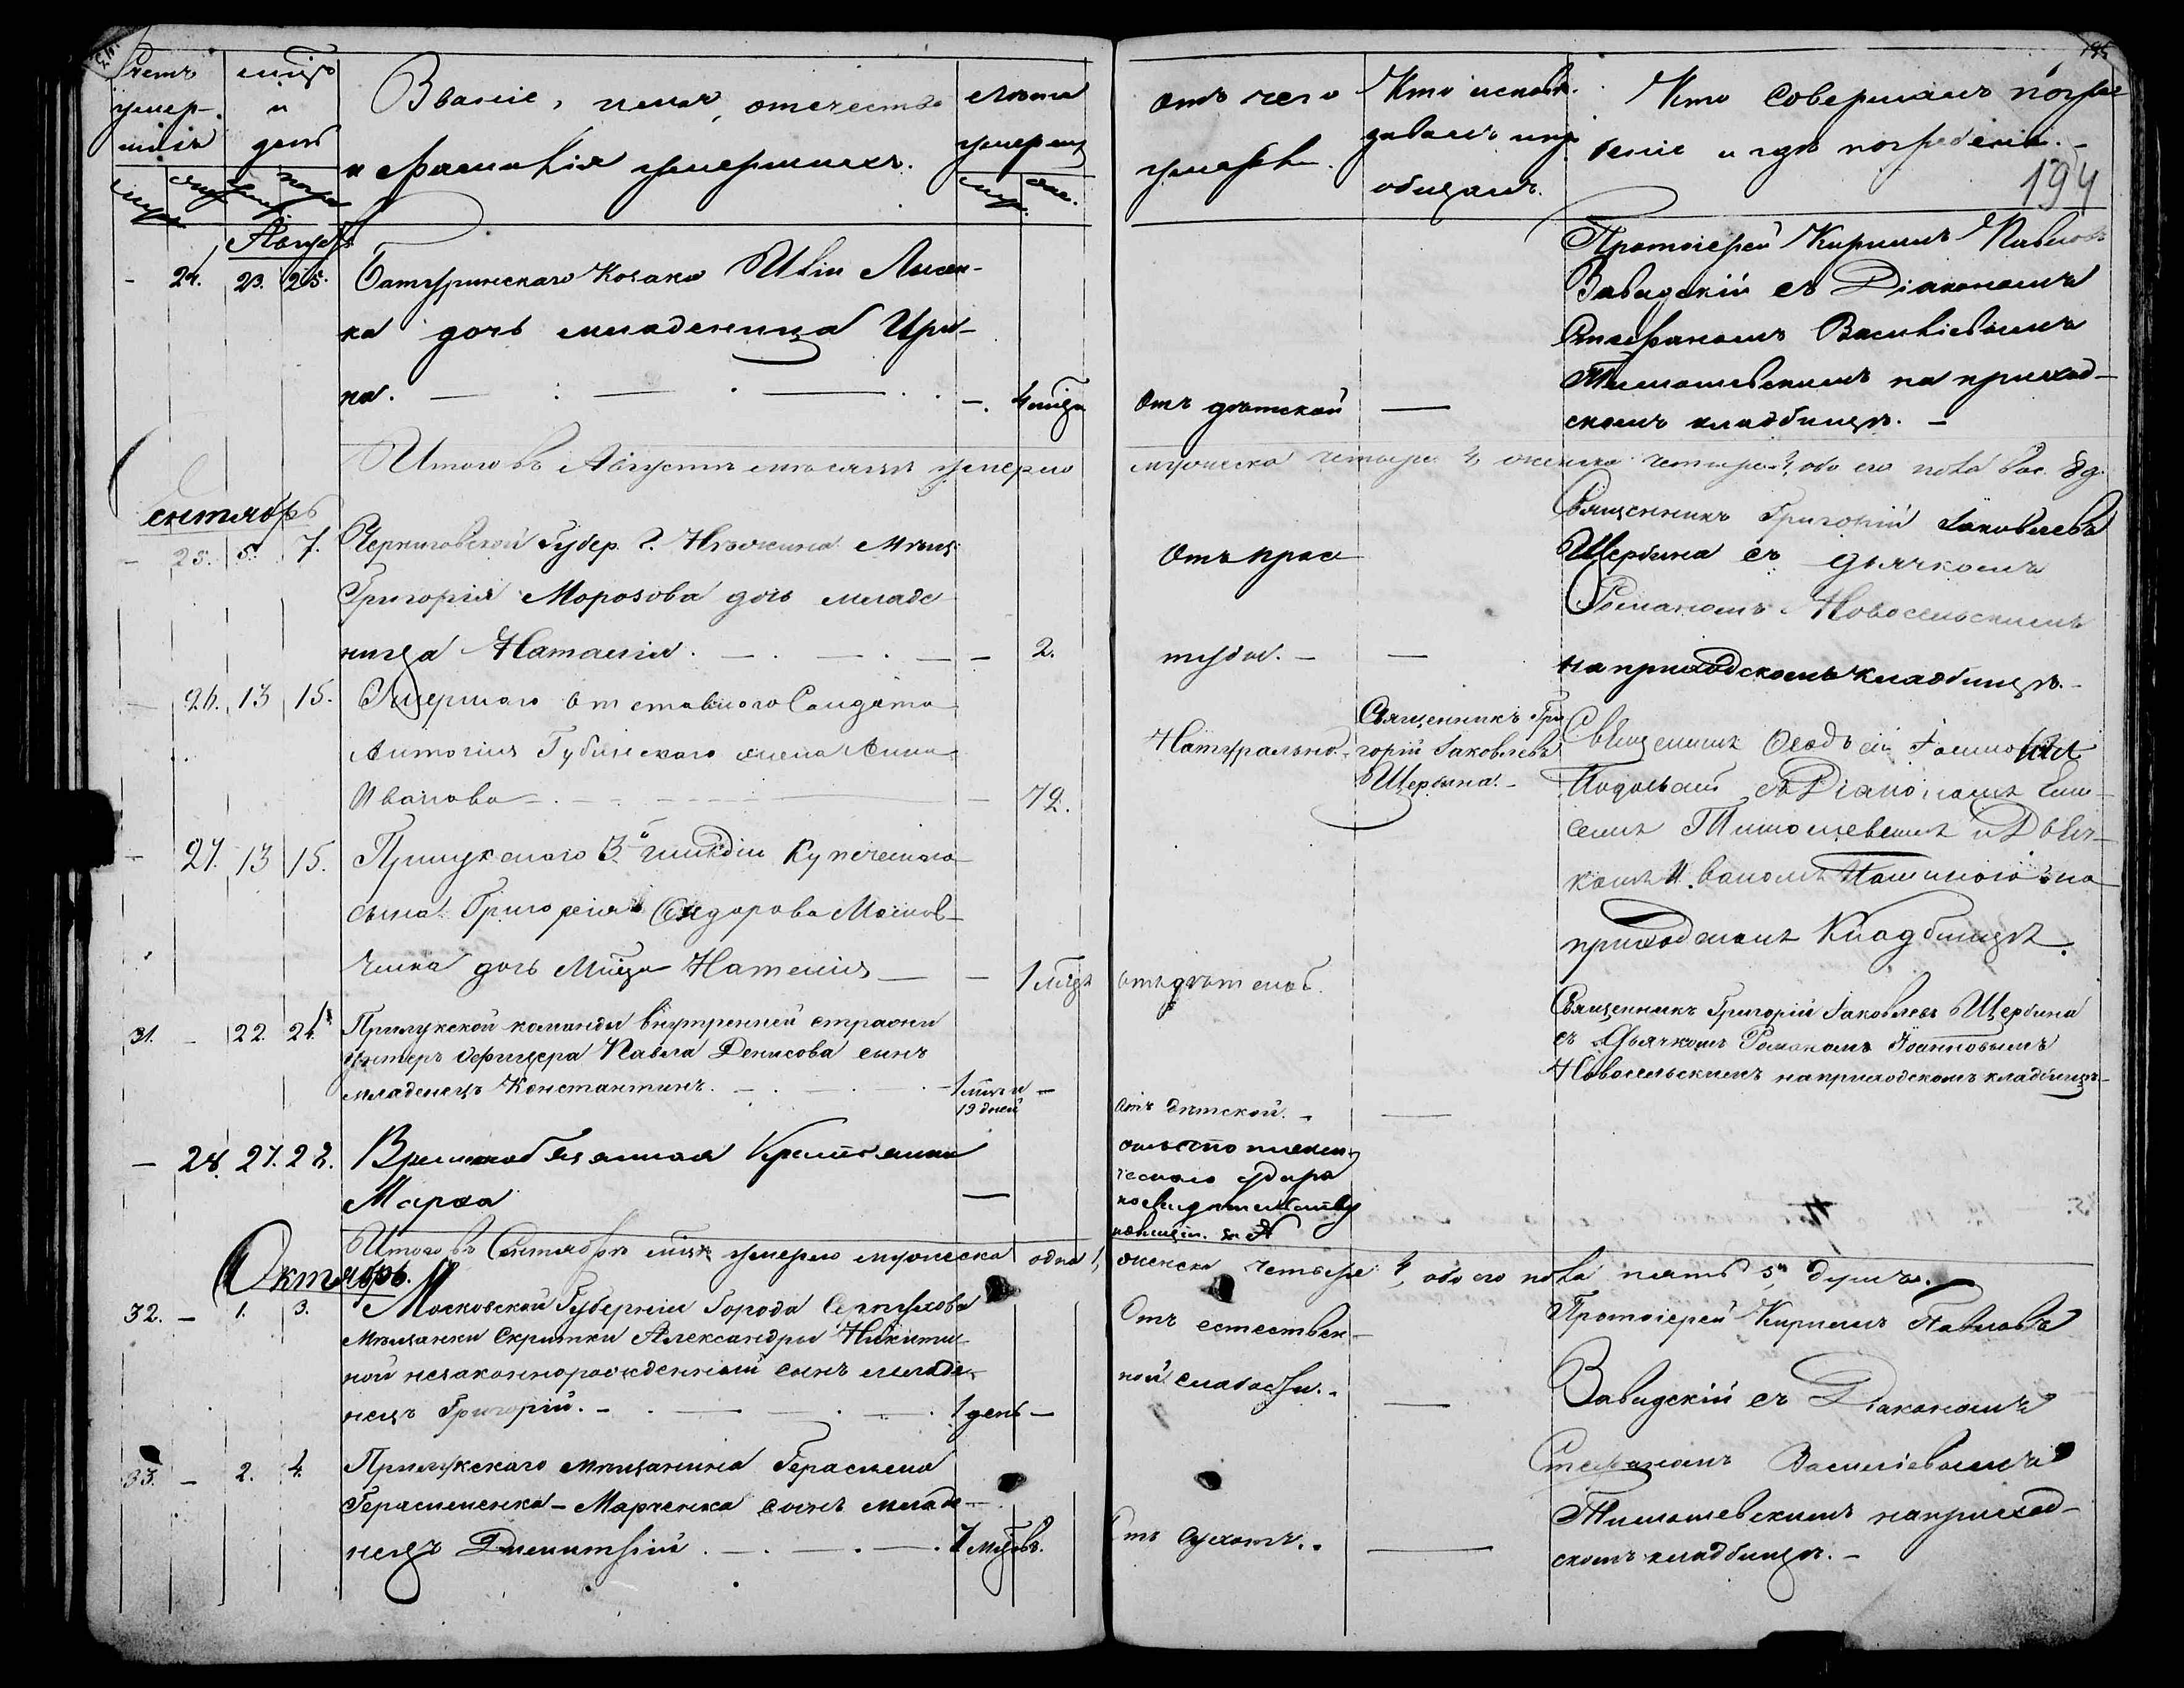 195
Счетъ умер-шихъ
мѣсяцъ и день
Званіе, имя, отечество
и фамилія умершихъ.
лѣта умерш.
отъ чего
умеръ.
Кто исповѣ-
дывалъ и прі-
общалъ.
Кто совершалъ погре-
беніе и гдѣ погребены.
194
Августъ
- 24. 23. 25. Батуринскаго Козака Иліи Лысен-
ка дочь младеница Ири-
на. - 4 мѣсяца
Отъ дѣтской
Протоіерей Кириллъ Павловъ
Завадскій съ Діакономъ
Стефаномъ Василіевымъ
Тимошевскимъ на приход-
скомъ кладбищѣ.
Итого въ Августѣ мѣсяцѣ умерло мужеска четыре 4, женска четыре 4, обоего пола 8
Сентябрь
- 25. 5. 7. Черниговской Губер. г. Нѣжина мѣщ.
Григорія Морозова дочь младе-
ница Наталія. - 2.
Отъ прос-
туды.
Священникъ Григорій Іаковлевъ
Щербина съ дьячкомъ
Романомъ Новосельскимъ
на приходскомъ кладбищѣ.
- 26. 13 15. Умершаго отставного Солдата
Антонія Губинскаго жена Анна
Иванова - 72.
Натурально.
Священникъ Гри-
горій Іаковлевъ
Щербина.
Священникъ
Подольскій съ Діакономъ Ели-
сеемъ Тимошевскимъ и Дьяч-
комъ Иваномъ на
приходскомъ Кладбищѣ.
- 27. 13 15. Прилукскаго 3й гильдіи Купеческаго
сына Григорія Сидорова
дочь Наталія - 1 мѣсяцъ
отъ дѣтской.
31. - 22. 24. Прилукской команды внутренней стражи
унтеръ офицера Павла Денисова сынъ
младенецъ Константинъ. 1 мѣсяцъ и
19 дней
отъ дѣтской.
Священникъ Григорій Іаковлевъ Щербина
съ Дьячкомъ Романомъ Іоанновымъ
Новосельскимъ на приходскомъ кладбищѣ
- 28. 27. 28. Временнообязанная Крестьянка
Марѳа -
отъ апоплекси-
ческаго удара
по свидѣтельству
полиціи
Итого въ Сентябрѣ мѣсяцѣ умерло мужеска одна 1, женска четыре 4, обоего пола пять 5 душъ.
Октябрь.
32. - 1. 3. Московской Губерніи Города Серпухова
мѣщанки Александры Никити-
ной незаконнорожденный сынъ младе-
нецъ Григорій. 1 день -
Отъ естествен-
ной слабости.
Протоіерей Кириллъ Павловъ
Завадскій съ Діакономъ
Стефаномъ Василіевымъ
Тимошевскимъ на приход-
скомъ кладбищѣ.
33. - 2. 4. Прилукскаго мѣщанина Герасима
Герасименка-Марченка сынъ младе-
нецъ Димитрій. 7 мѣсяцовъ.
Отъ сухотъ.